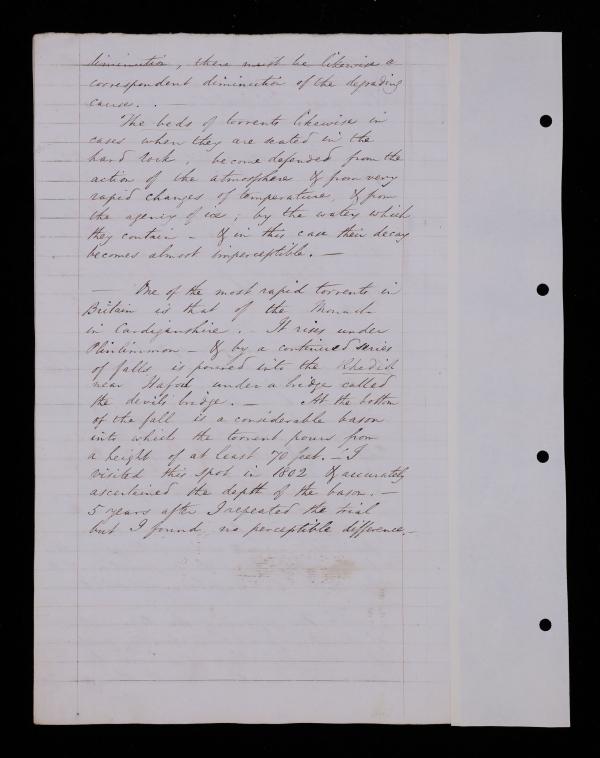 diminution, there must be likewise a
correspondent diminution of the degrading
cause. . —
The beds of torrents likewise in
cases when they are seated in the
hard rock, become defended from the
action of the atmosphere & from very
rapid changes of temperature, & from
the agency of ice; by the water which
they contain — & in this case their decay
becomes almost imperceptible. —
— One of the most rapid torrents in
Britain is that of the Monach
in Cardiganshire. — It rises under
Plinlimmon — & by a continued series
of falls is poured into the Rhedich
near Hafod under a bridge called
the devils bridge. — At the bottom
of the fall is a considerable bason
into which the torrent pours from
a height of at least 70 feet. — I
visited this spot in 1802 & accurately
ascertained the depth of the bason. —
5 years after I repeated the trial
but I found no perceptible difference. —